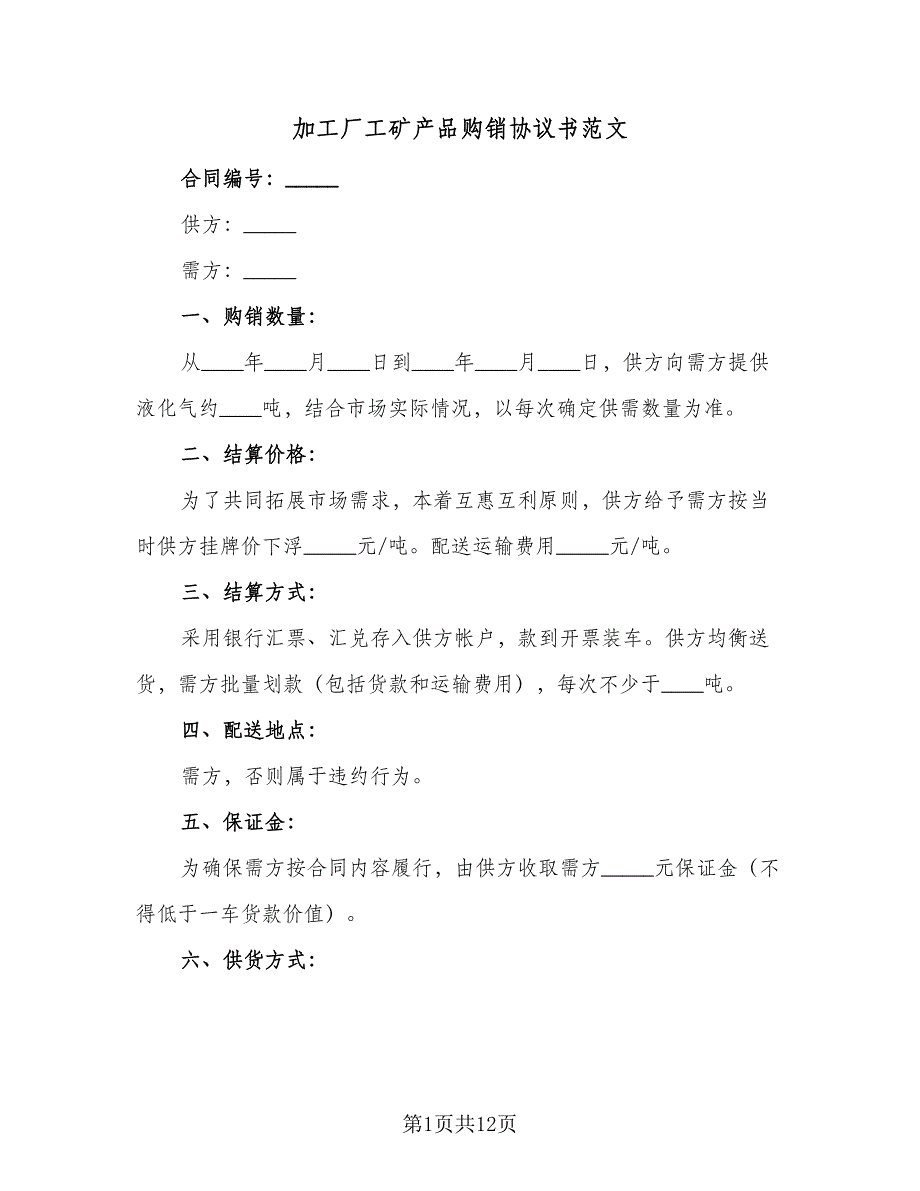 加工厂工矿产品购销协议书范文
合同编号：_____
供方：_____
需方：_____
一、购销数量：
从____年____月____日到____年____月____日，供方向需方提供
液化气约____吨，结合市场实际情况，以每次确定供需数量为准。
二、结算价格：
为了共同拓展市场需求，本着互惠互利原则，供方给予需方按当
时供方挂牌价下浮_____元/吨。配送运输费用_____元/吨。
三、结算方式：
采用银行汇票、汇兑存入供方帐户，款到开票装车。供方均衡送
货，需方批量划款（包括货款和运输费用），每次不少于____吨。
四、配送地点：
需方，否则属于违约行为。
五、保证金：
为确保需方按合同内容履行，由供方收取需方_____元保证金（不
得低于一车货款价值）。
六、供货方式：
第1页共12页